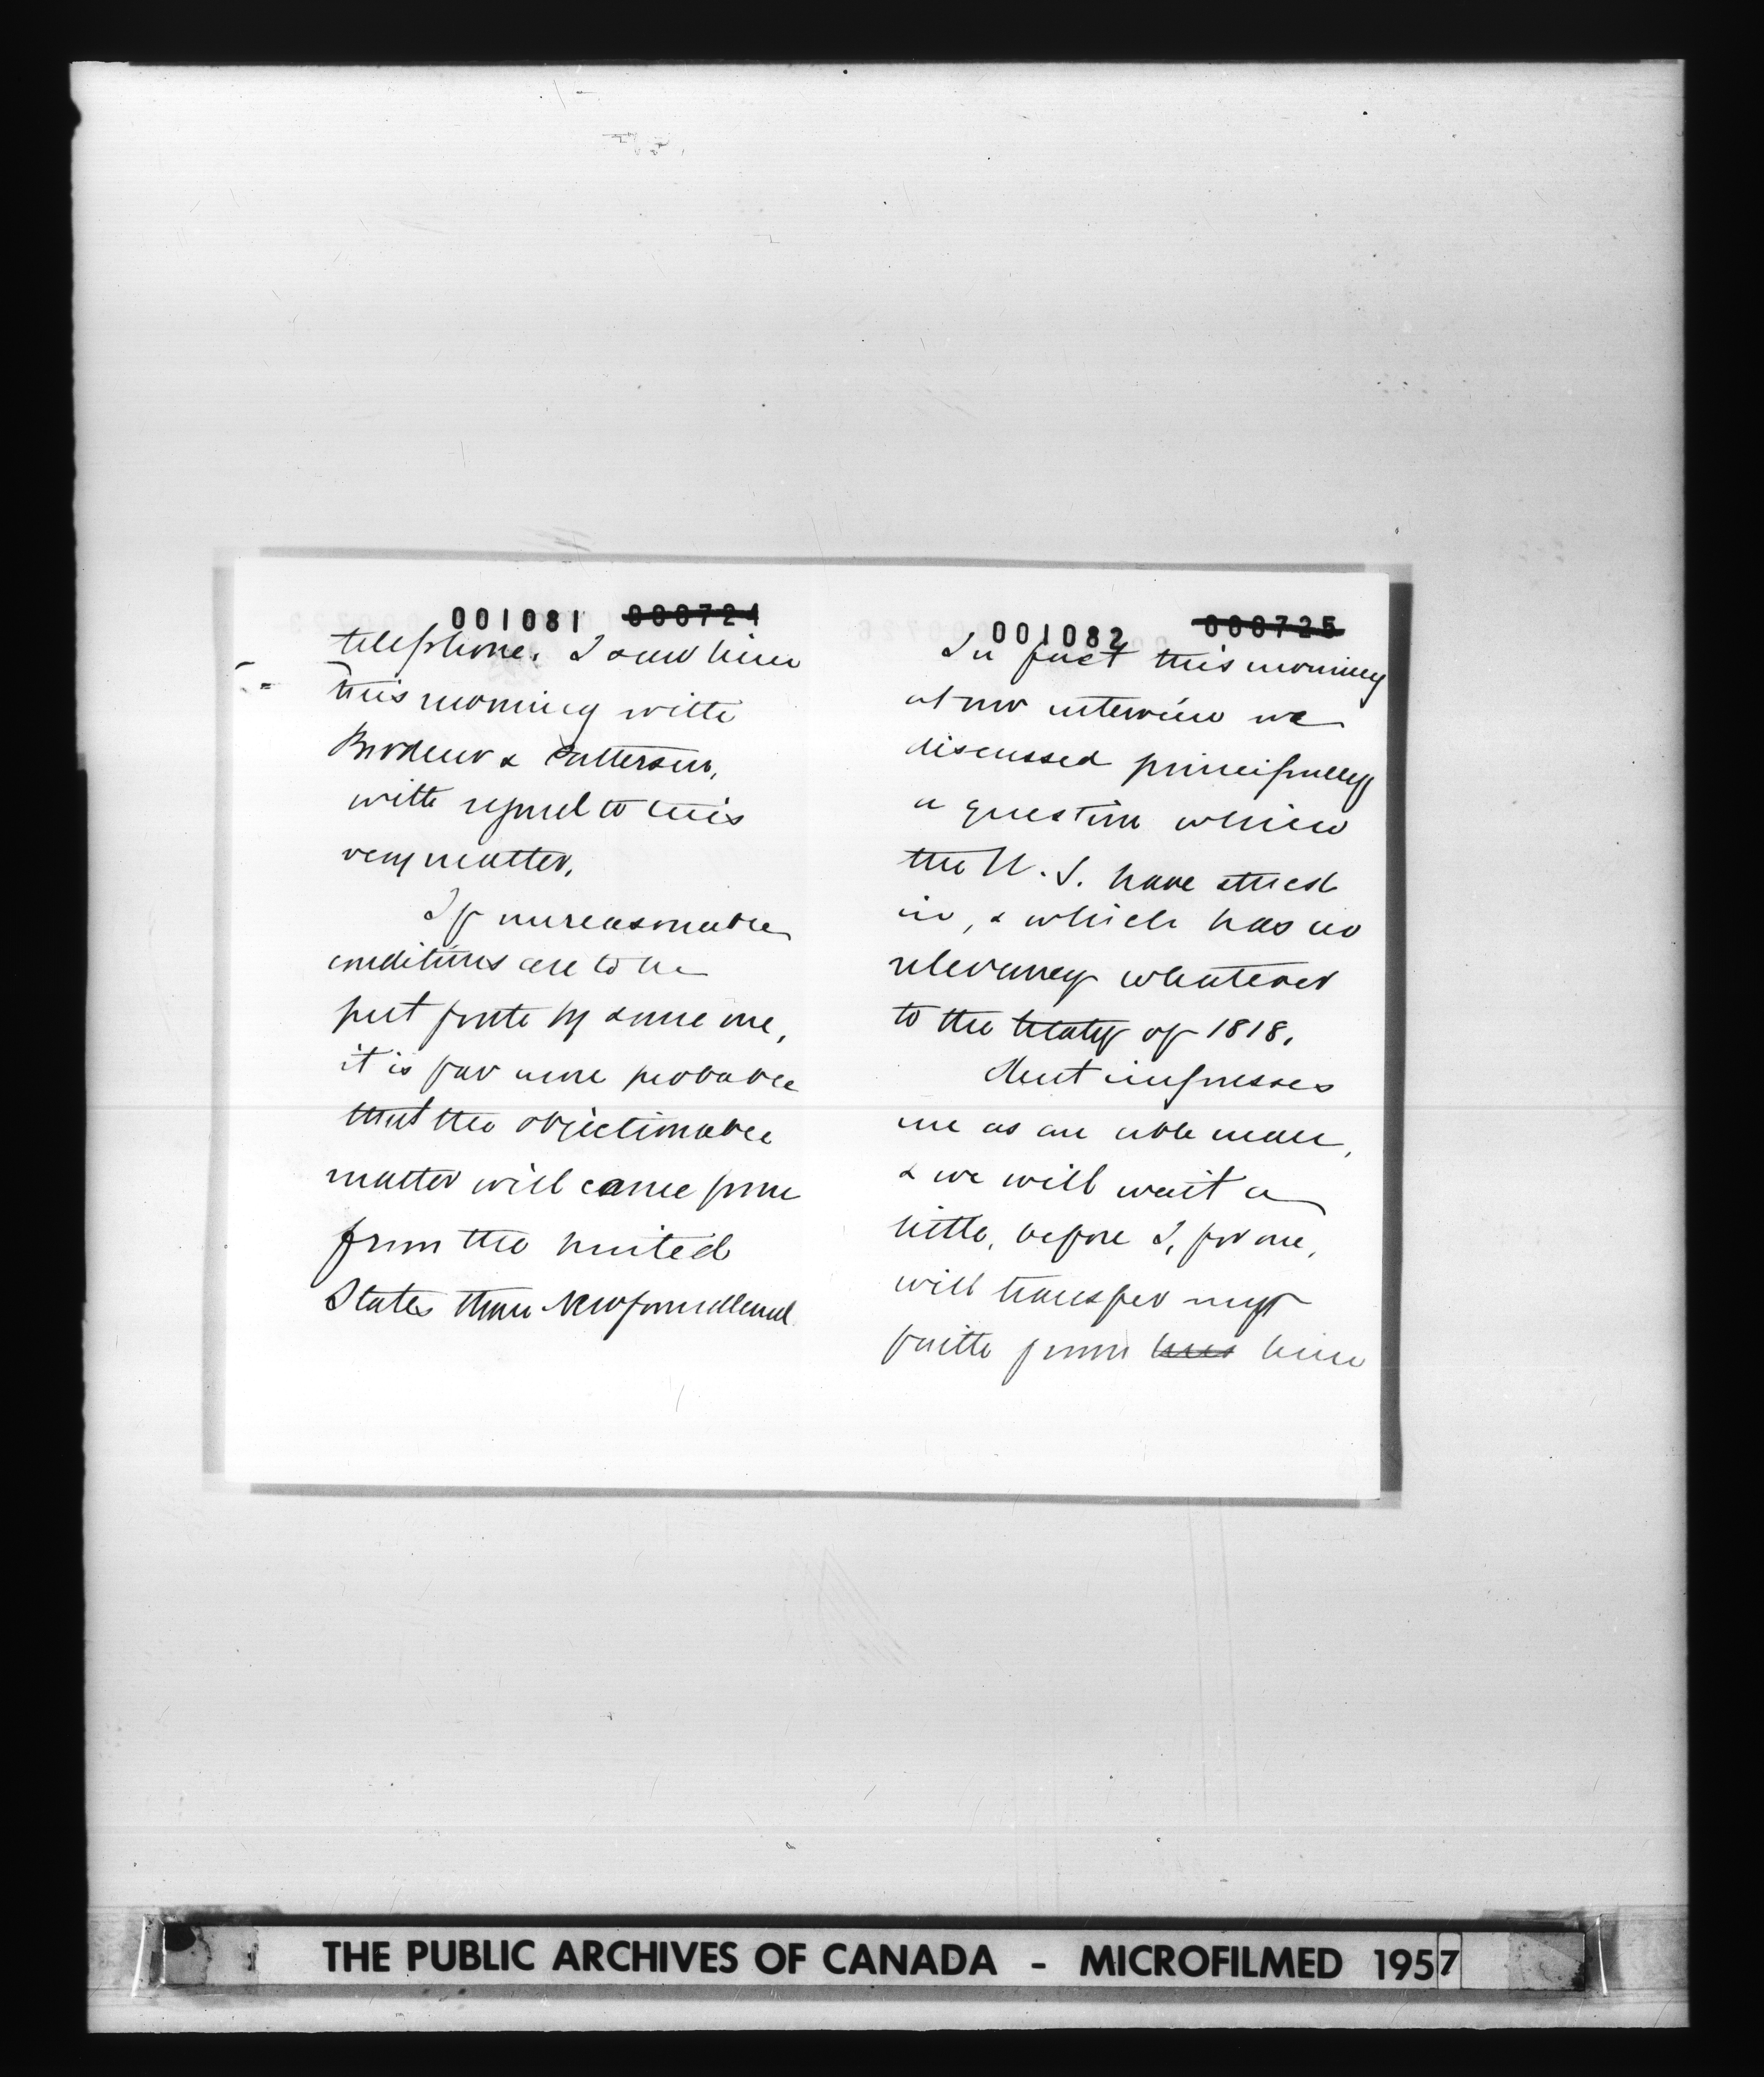 001081 000724
telephone. I saw him
this morning with
Brodeur & Patterson,
with regard to this
very matter.
If unreasonable
conditions are to be
put forth by some one,
it is far more probable
that the objectionable
matter will come from
from the United
States than Newfoundland.
001082 000725
In fact this morning
at our interview we
discussed principally
a question which
the U.S. have stuck
in, & which has no
relevancy whatever
to the treaty of 1818.
Kent impresses
me as an able man,
& we will wait a
little, before I, for one,
will transfer my
faith from him
THE PUBLIC ARCHIVES OF CANADA - MICROFILMED 1957